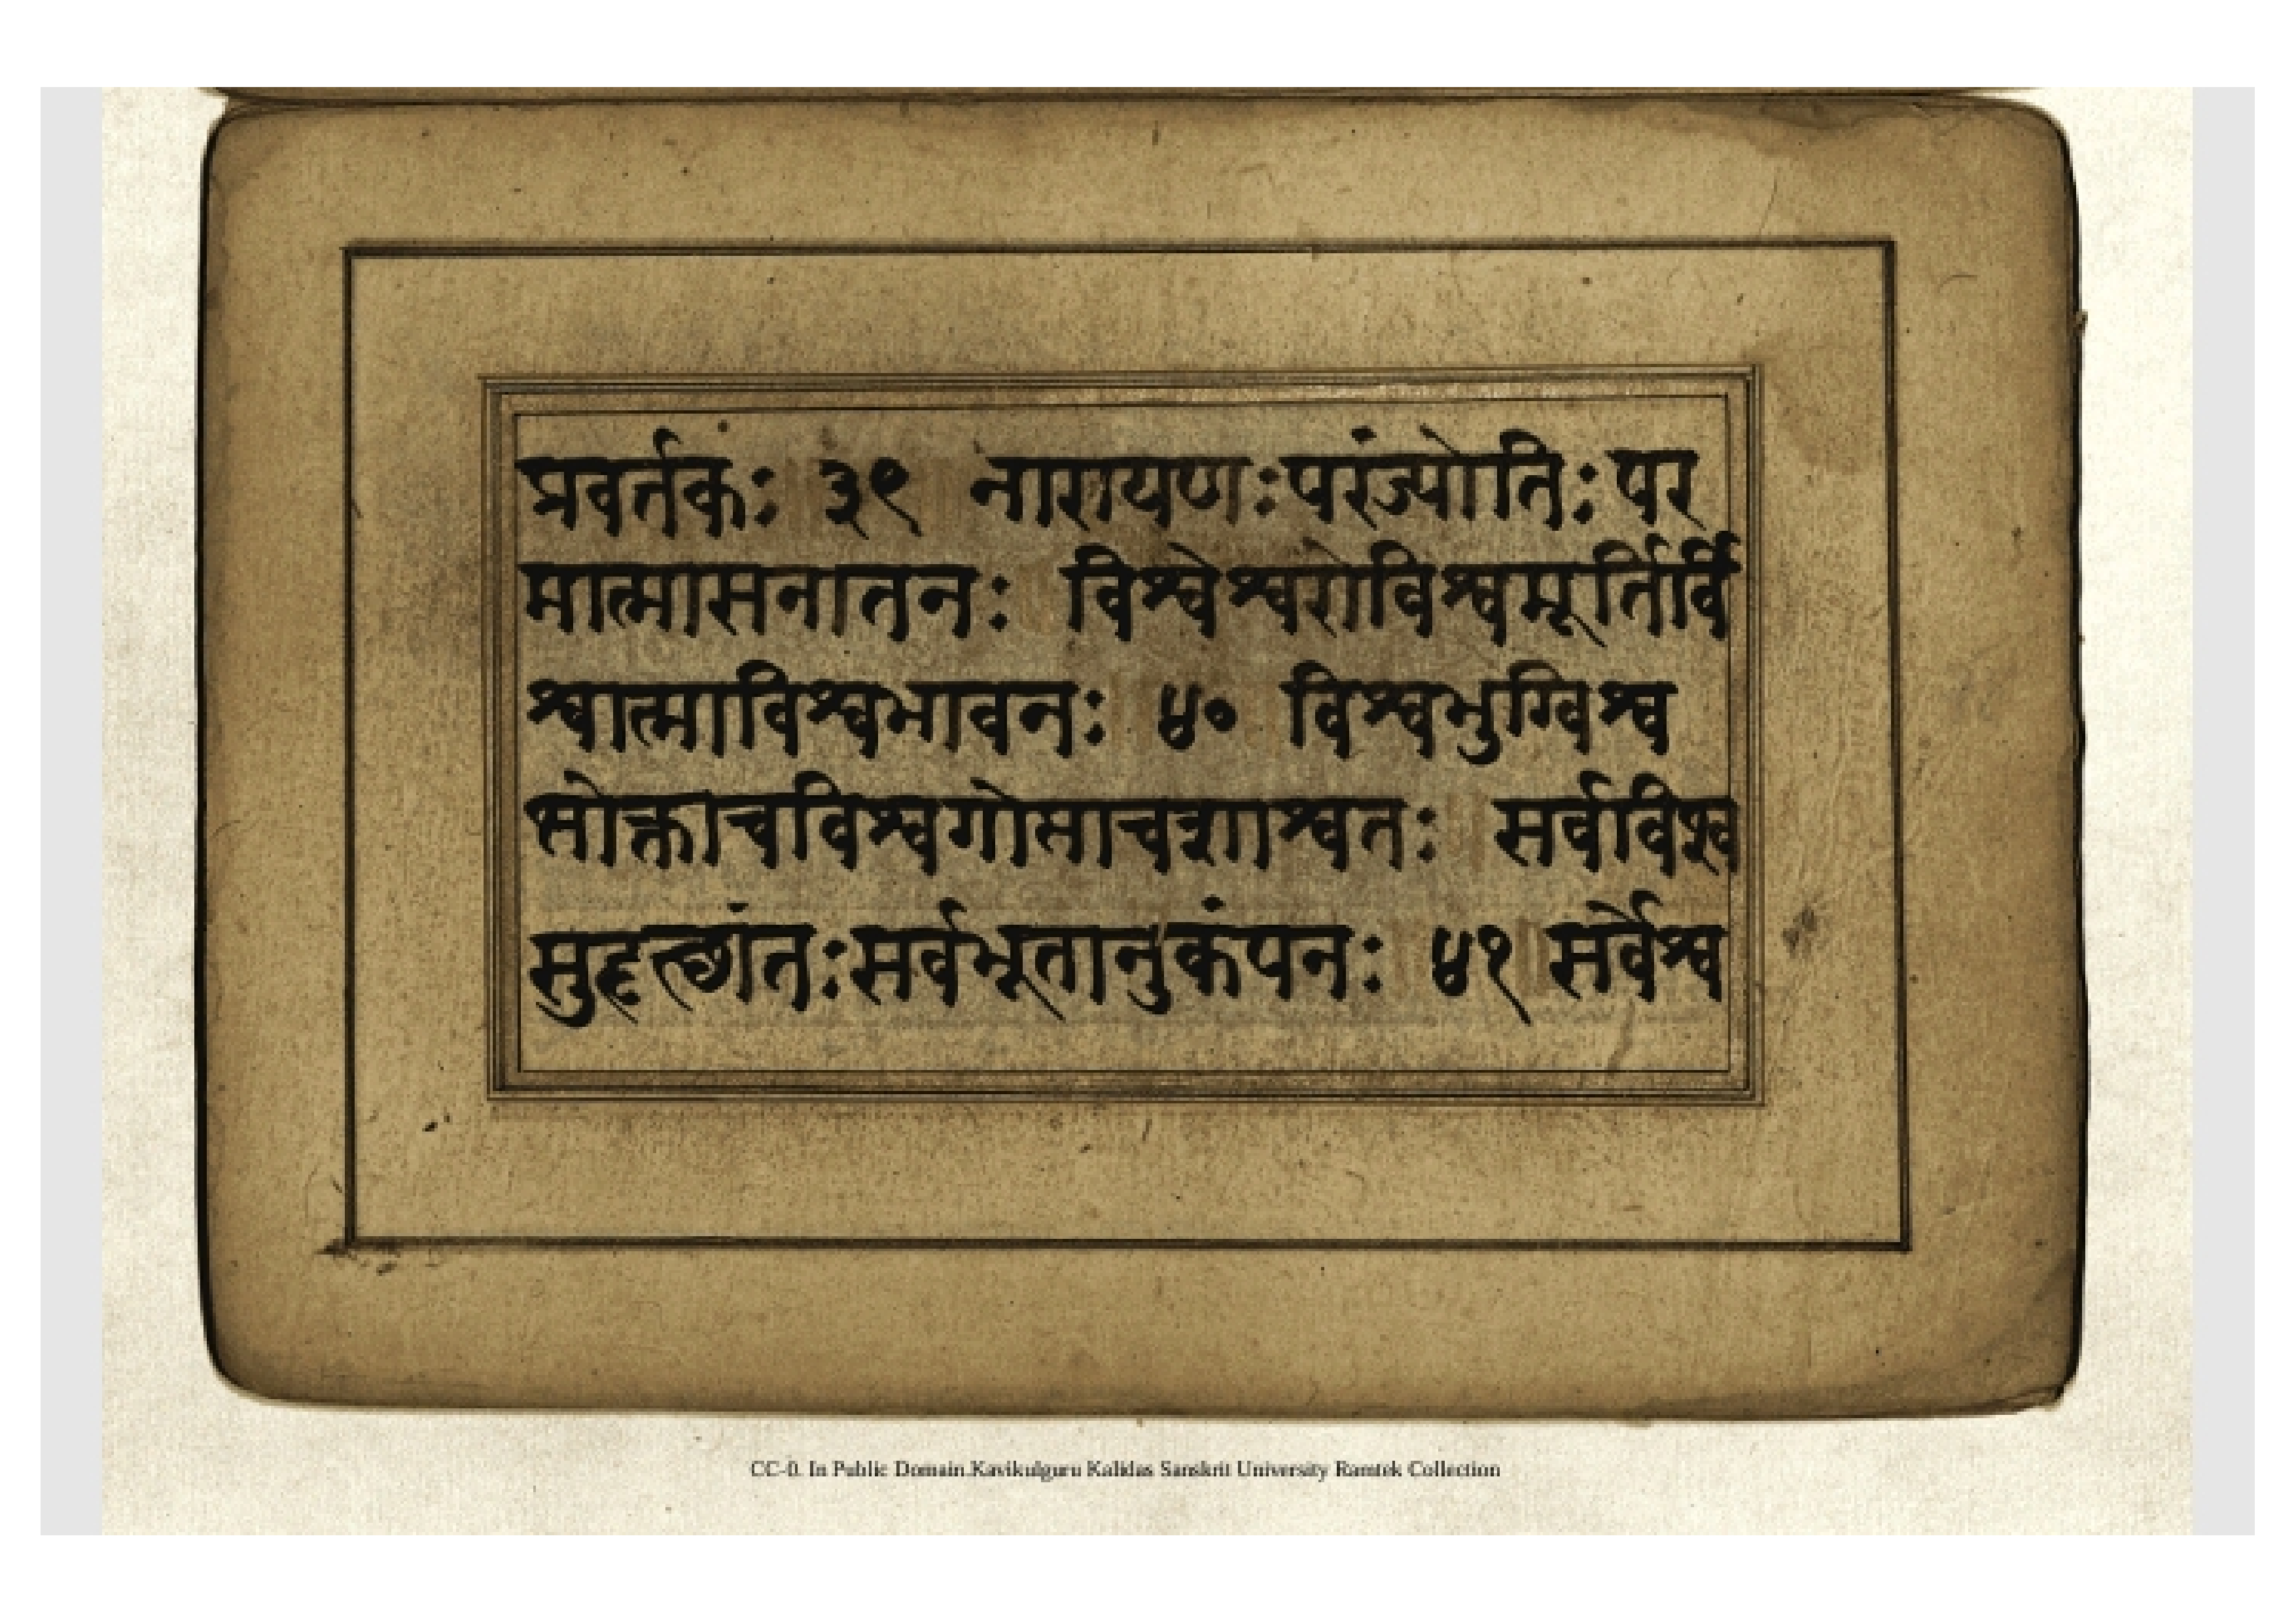 प्रवर्तकः ॥ ३९ ॥ नारायणःपरंज्योतिःपर
मात्मासनातनः । विश्वेश्वरोविश्वमूर्तिर्वि
श्वात्माविश्वभावनः ॥ ४० ॥ विश्वभुग्विश्व
सोक्ताचविश्वगोसाचशाश्वतः । सर्वविश्व
सुहृत्छांतःसर्वभूतानुकंपनः ॥ ४१ ॥ सर्वैश्व
CC-0. In Public Domain.Kavikulguru Kalidas Sanskrit University Ramtek Collection